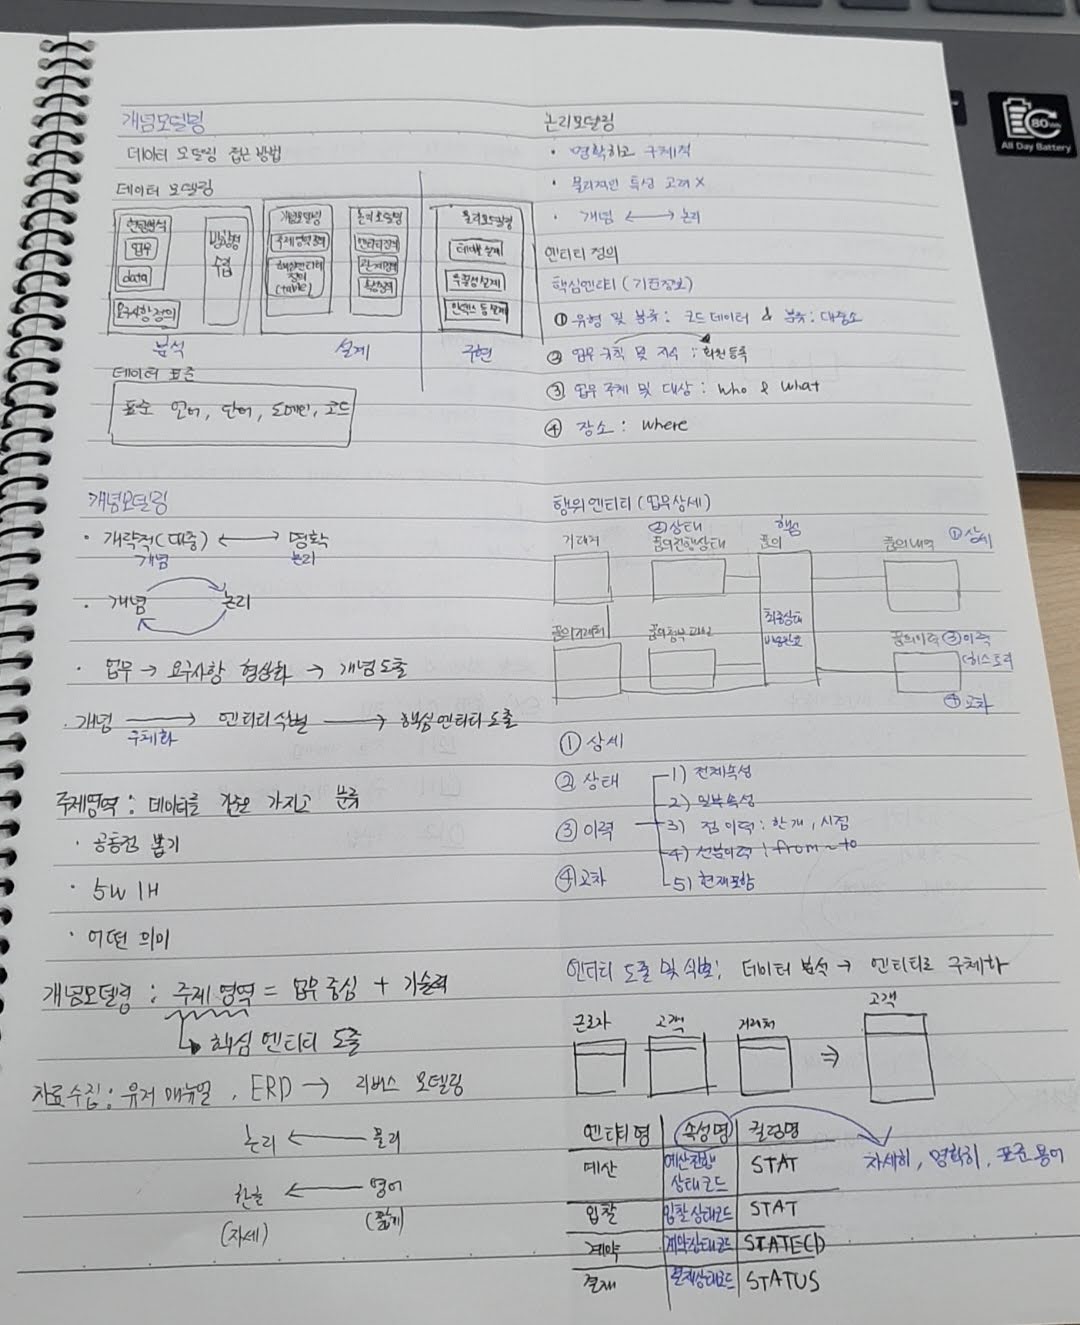 개념모델링
데이터 모델링 접근 방법
데이터 모델링
현황분석
업무
data
요구사항정의
방향성
수립
개념모델링
주제영역정의
핵심엔터티
정의
(table)
논리모델링
엔터티정의
관계정의
속성정의
물리모델링
테이블 설계
무결성설계
인덱스 등 설계
분석
설계
구현
데이터 표준
표준 언어, 단어, 도메인, 코드
개념모델링
· 개략적(대중) ↔ 명확
개념
논리
· 개념 논리
· 업무 → 요구사항 형상화 → 개념도출
· 개념 → 엔터티식별 → 핵심엔터티 도출
구체화
주제영역 : 데이터를 가지고 분류
· 공통점 뽑기
· 5W 1H
· 어떤 의미
개념모델링 : 주제 영역 = 업무 중심 + 기술력
핵심 엔터티 도출
자료수집 : 유저 매뉴얼, ERD → 리버스 모델링
논리 ← 물리
한글 ← 영어
(자세) (짧게)
논리모델링
· 명확하고 구체적
· 물리적인 특성 고려 X
· 개념 ↔ 논리
엔터티 정의
핵심엔터티 (기준정보)
① 유형 및 분류 : 코드데이터 & 분류 : 대중소
② 업무 규칙 및 지식 : 회원등록
③ 업무 주체 및 대상 : who & what
④ 장소 : where
행위엔터티 (업무상세)
거래처
②상태
품의진행상태
핵심
품의
품의내역
①상세
최종상태
품의거래처
품의첨부파일
품의이력
③이력
히스토리
④교차
① 상세
② 상태
③ 이력
④ 교차
1) 전체속성
2) 일부속성
3) 점 이력 : 한개, 시점
4) 선분이력 : from ~ to
5) 현재포함
엔터티 도출 및 식별 : 데이터 분석 → 엔터티로 구체화
근로자
고객
거래처
⇒
고객
엔터티명 속성명 컬럼명
예산 예산진행상태코드 STAT
입찰 입찰상태코드 STAT
계약 계약상태코드 STATECD
결재 결재상태코드 STATUS
자세히, 명확히, 표준 용어
80Whr
All Day Battery